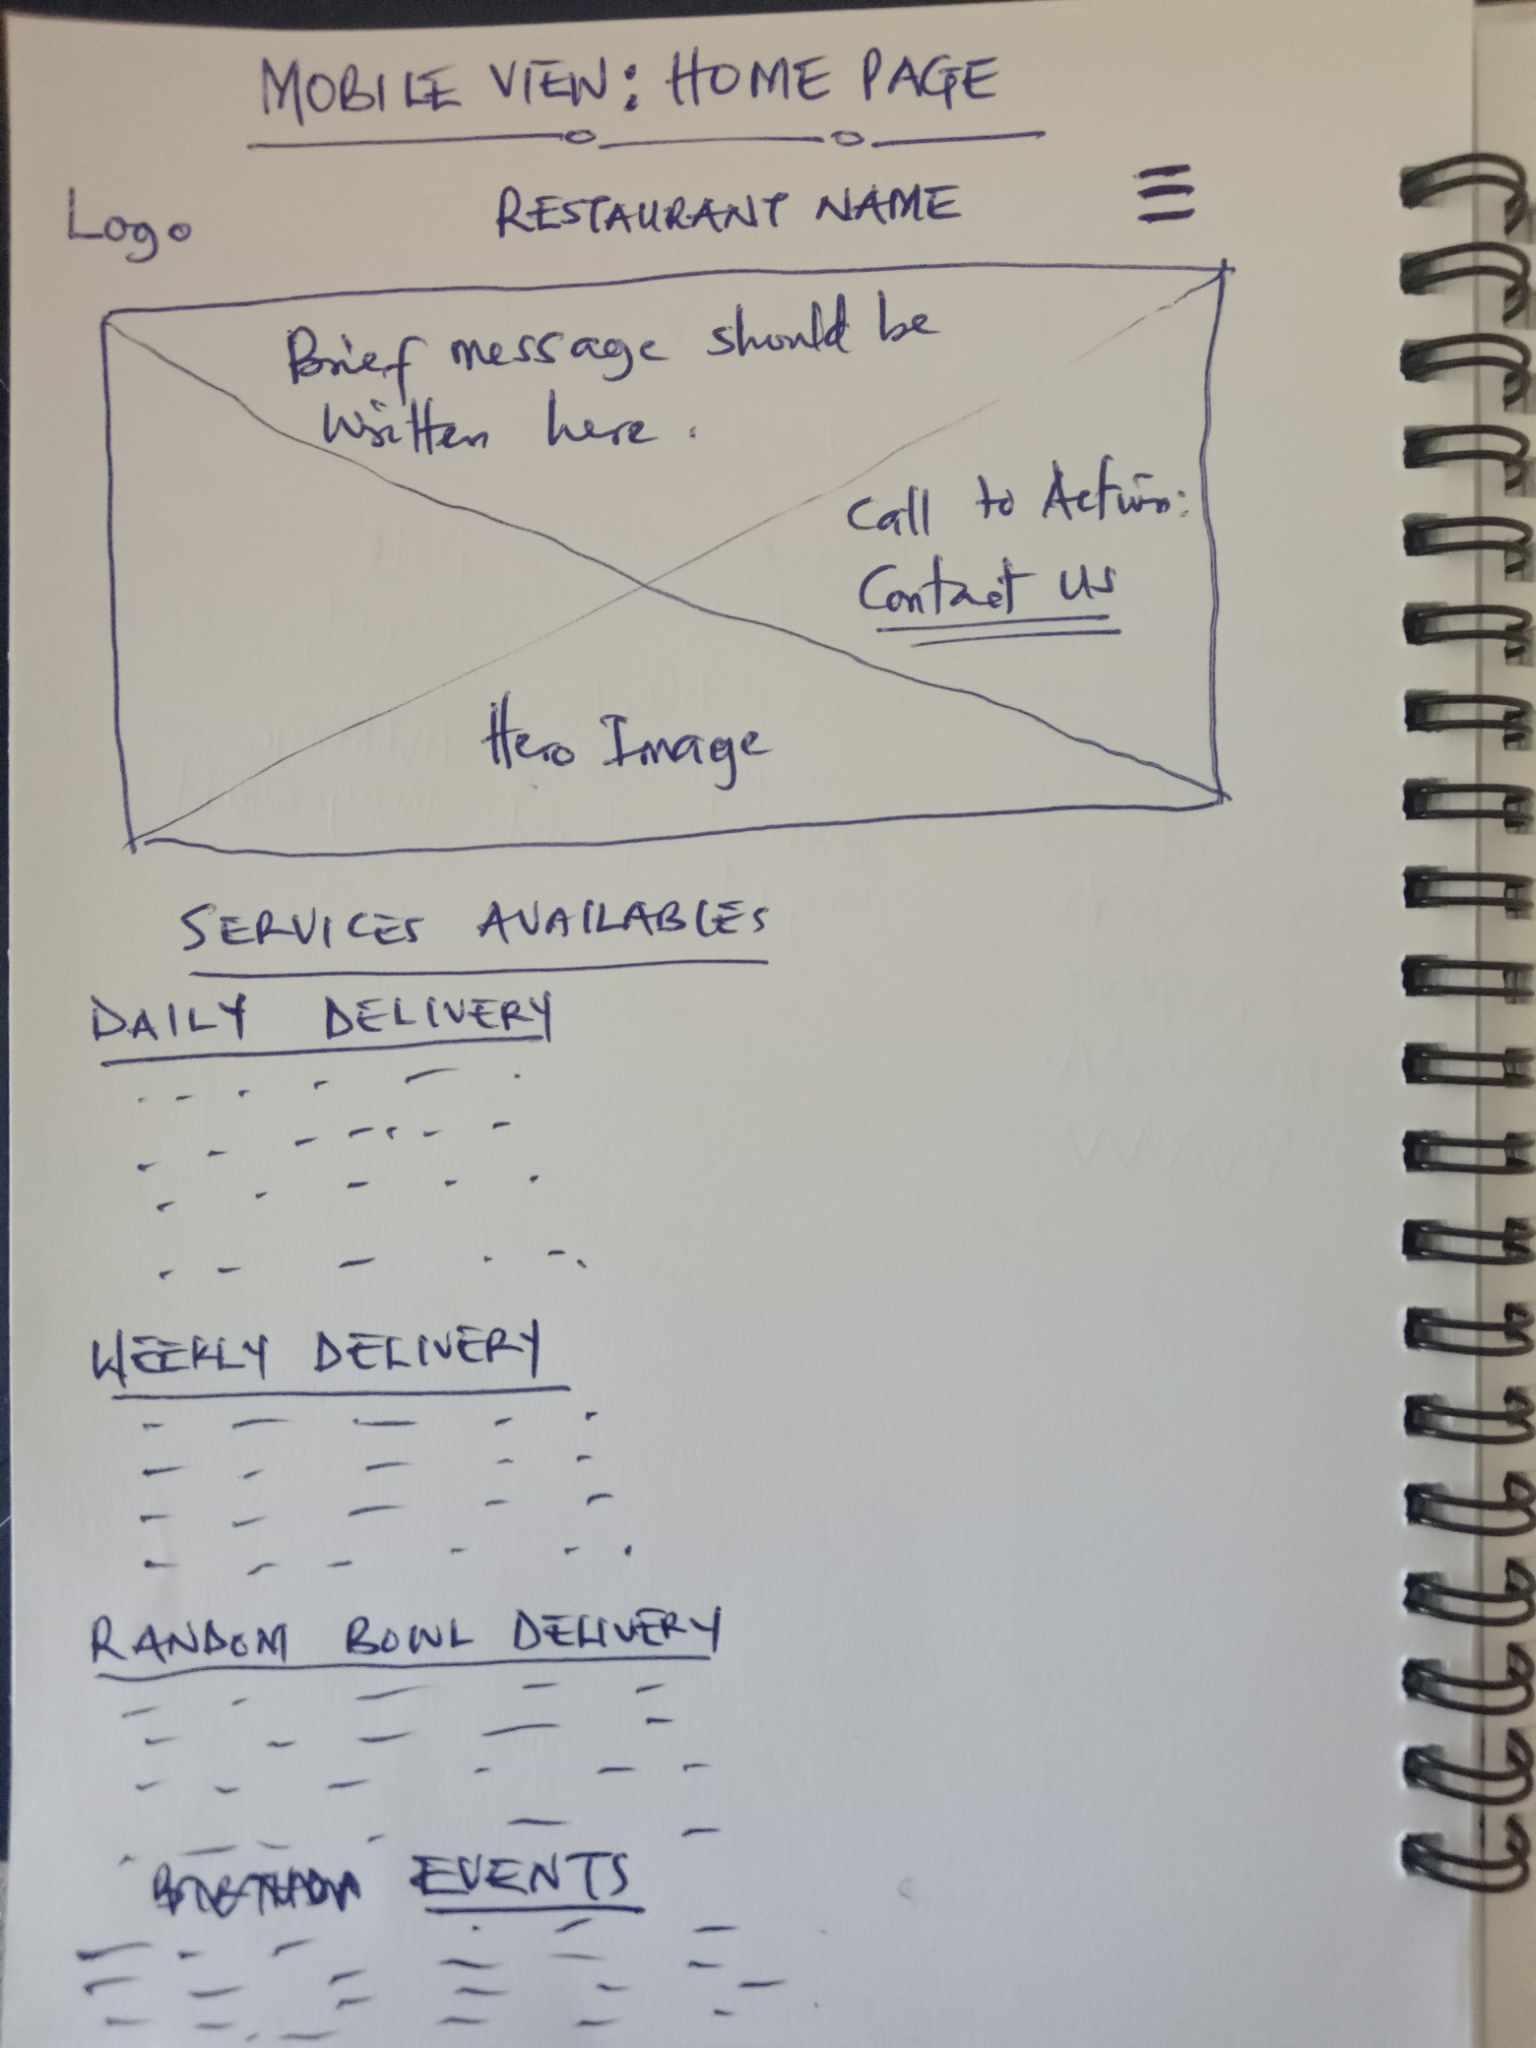 MOBILE VIEW: HOME PAGE
Logo RESTAURANT NAME
Brief message should be
written here.
Call to Action:
Contact Us
Hero Image
SERVICES AVAILABLES
DAILY DELIVERY
WEEKLY DELIVERY
RANDOM BOWL DELIVERY
EVENTS